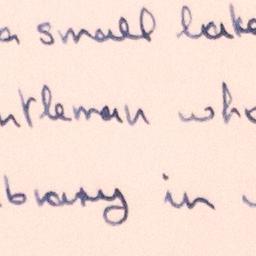 a small lake
ntleman who
brary in